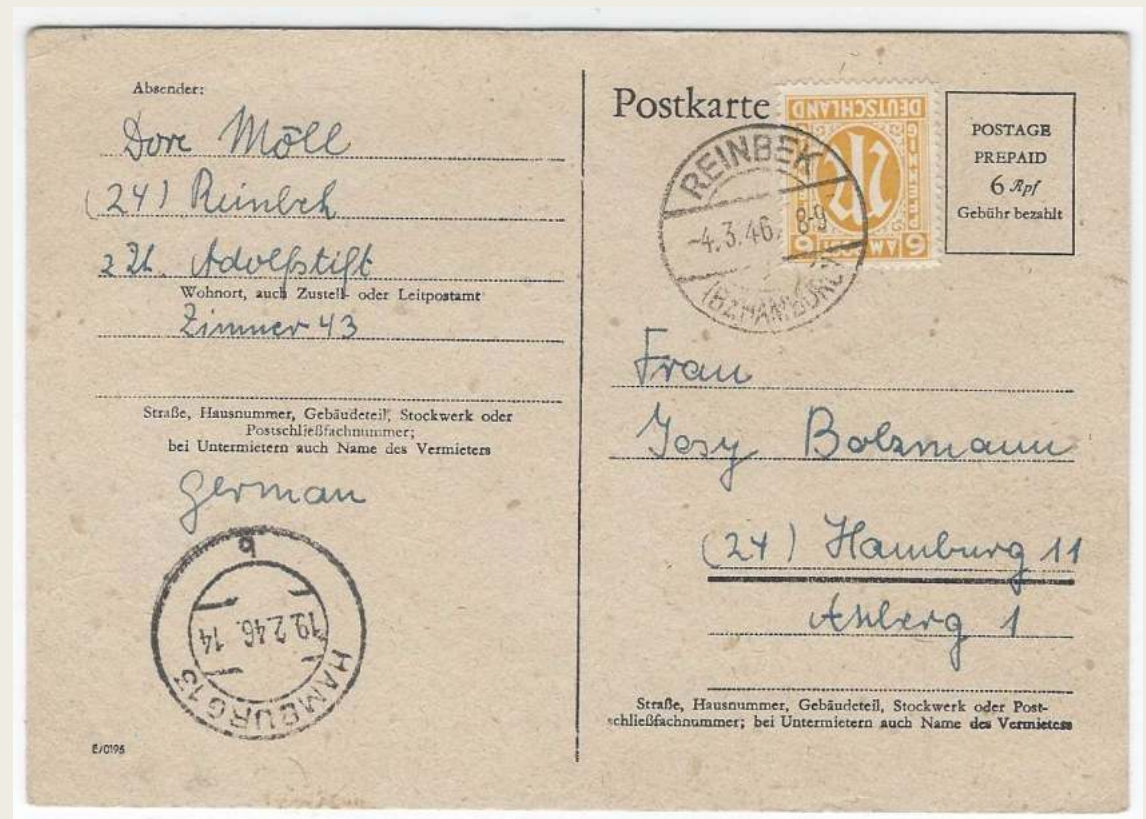 Absender:
Dore Möll
(24) Reinbek
z Zt. Adolfstift
Wohnort, auch Zustell- oder Leitpostamt
Zimmer 43
Straße, Hausnummer, Gebäudeteil, Stockwerk oder
Postschließfachnummer;
bei Untermietern auch Name des Vermieters
german
HAMBURG 13
19.2.46. 14
b
E/0196
Postkarte
DEUTSCHLAND
AM POST
6
6
REINBEK
-4.3.46. 8-9
(BZ.HAMBURG)
POSTAGE
PREPAID
6 Rpf
Gebühr bezahlt
Frau
Josy Bolzmann
(24) Hamburg 11
1
Straße, Hausnummer, Gebäudeteil, Stockwerk oder Post-
schließfachnummer; bei Untermietern auch Name des Vermieters